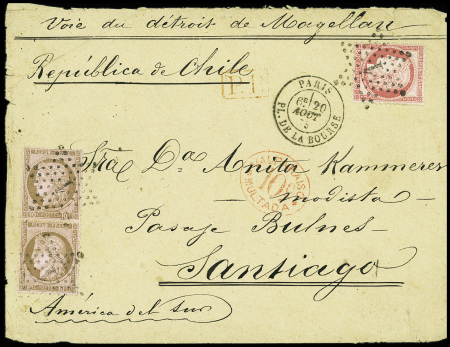 Voie du détroit de Magellan
República de Chile
P.P.
PARIS
6E 20
AOUT
PL. DE LA BOURSE
Sra Da Anita Kammerer
modista
10
MULTADA
Pasaje Bulnes
Santiago
América del Sur